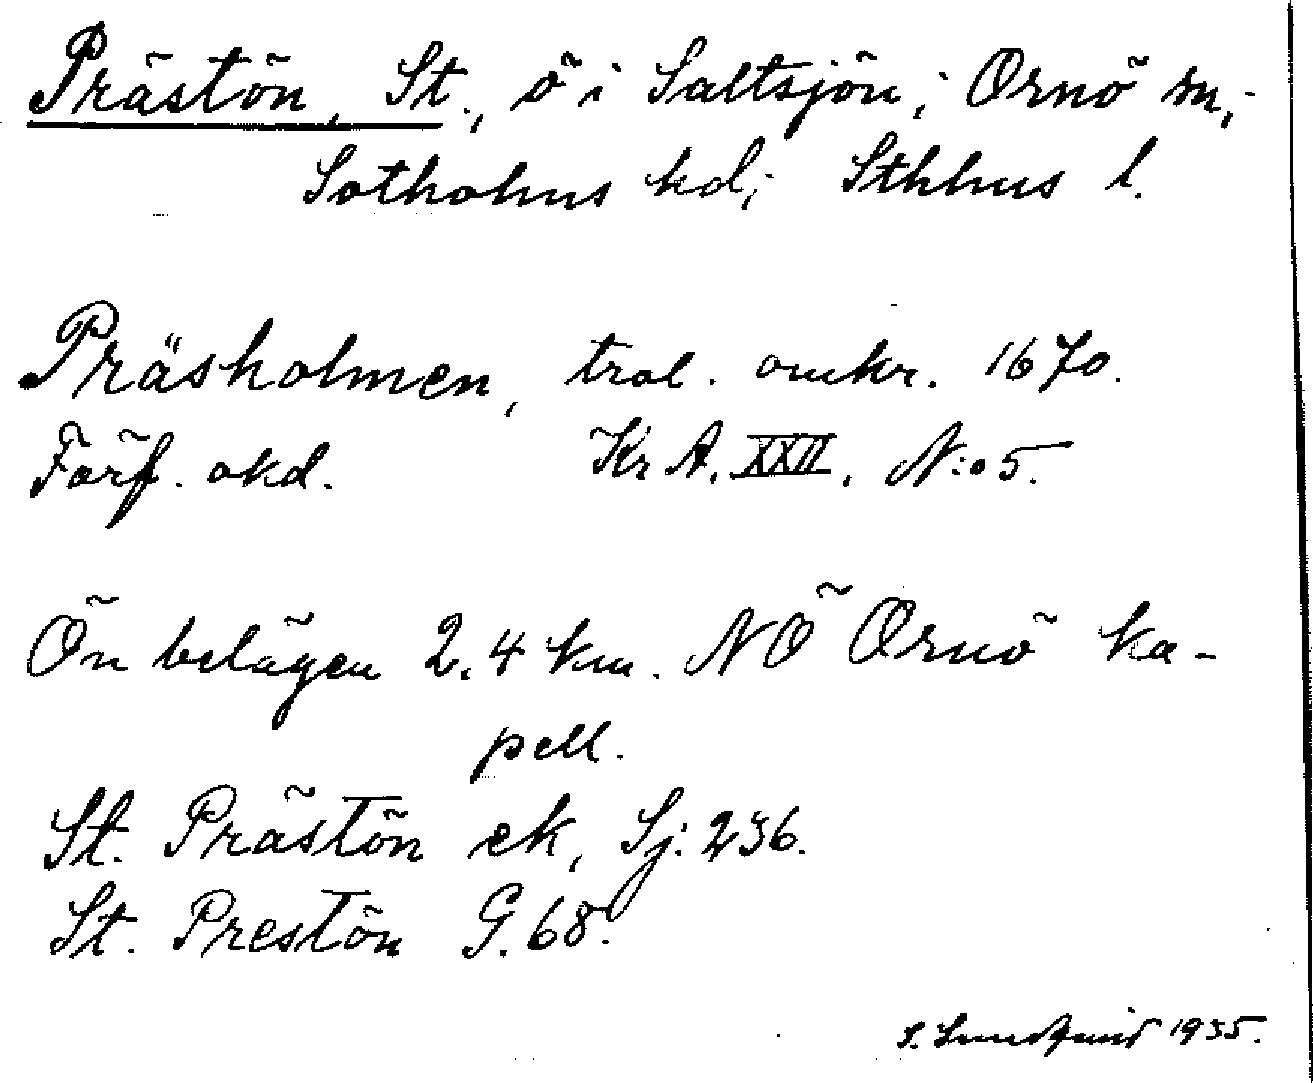 Prästön, St., ö i Saltsjön; Ornö sn;
Sotholms hd; Sthlms l.
Präsholmen, trol. omkr. 1670.
Förf. okd. Kr A. XXII. N:o 5.
Ön belägen 2.4 km. NÖ Ornö ka-
pell.
St. Prästön ek, Sj. 236.
St. Prestön G. 68.
S. Lundquist 1935.